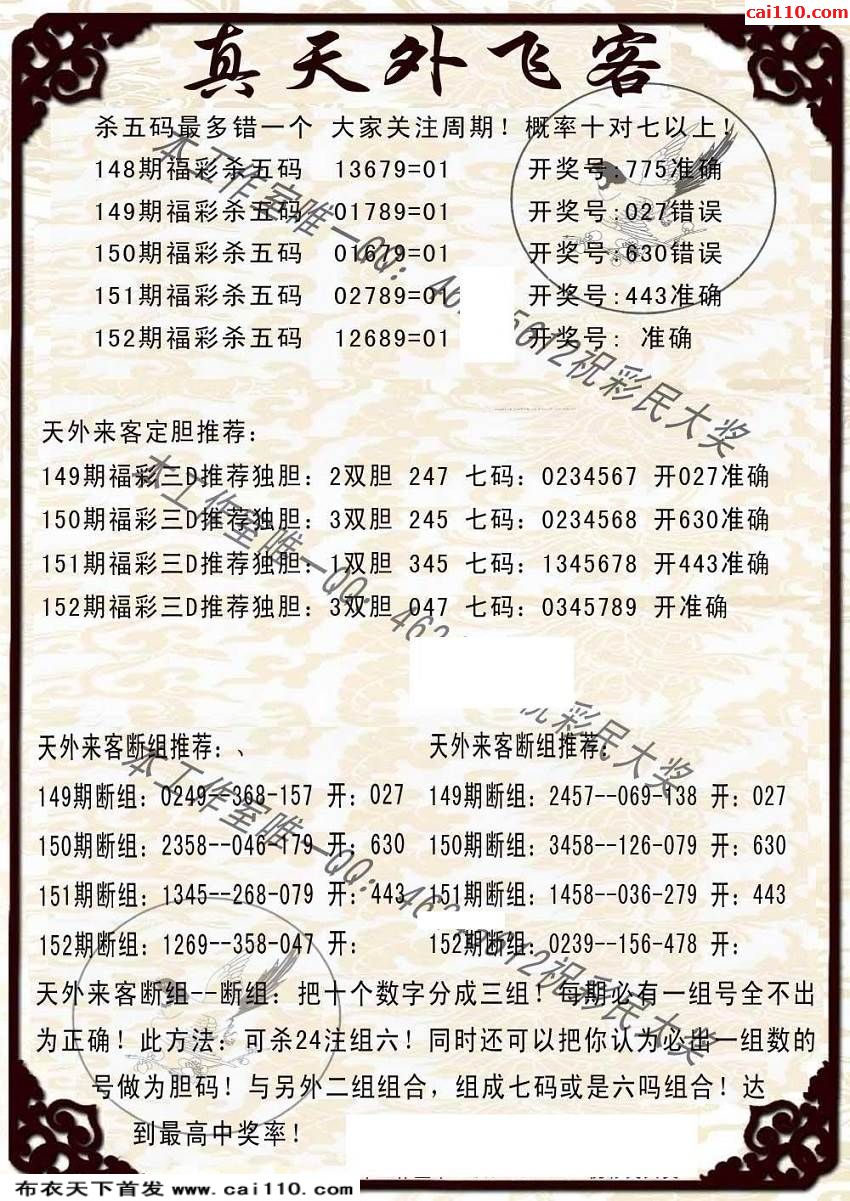 cai110.com
真天外飞客
杀五码最多错一个 大家关注周期！概率十对七以上！
148期福彩杀五码 13679=01 开奖号:775准确
149期福彩杀五码 01789=01 开奖号:027错误
150期福彩杀五码 01679=01 开奖号:630错误
151期福彩杀五码 02789=01 开奖号:443准确
152期福彩杀五码 12689=01 开奖号: 准确
天外来客定胆推荐：
149期福彩三D推荐独胆：2双胆 247 七码：0234567 开027准确
150期福彩三D推荐独胆：3双胆 245 七码：0234568 开630准确
151期福彩三D推荐独胆：1双胆 345 七码：1345678 开443准确
152期福彩三D推荐独胆：3双胆 047 七码：0345789 开准确
天外来客断组推荐：、 天外来客断组推荐：
149期断组：0249--368-157 开：027 149期断组：2457--069-138 开：027
150期断组：2358--046-179 开：630 150期断组：3458--126-079 开：630
151期断组：1345--268-079 开：443 151期断组：1458--036-279 开：443
152期断组：1269--358-047 开： 152期断组：0239--156-478 开：
天外来客断组--断组：把十个数字分成三组！每期必有一组号全不出
为正确！此方法：可杀24注组六！同时还可以把你认为必出一组数的
号做为胆码！与另外二组组合，组成七码或是六吗组合！达
到最高中奖率！
本工作室唯一QQ：46 5612祝彩民大奖
本工作室唯一QQ：462 祝彩民大奖
本工作室唯一QQ：46 5612祝彩民大奖
布衣天下首发 www.cai110.com